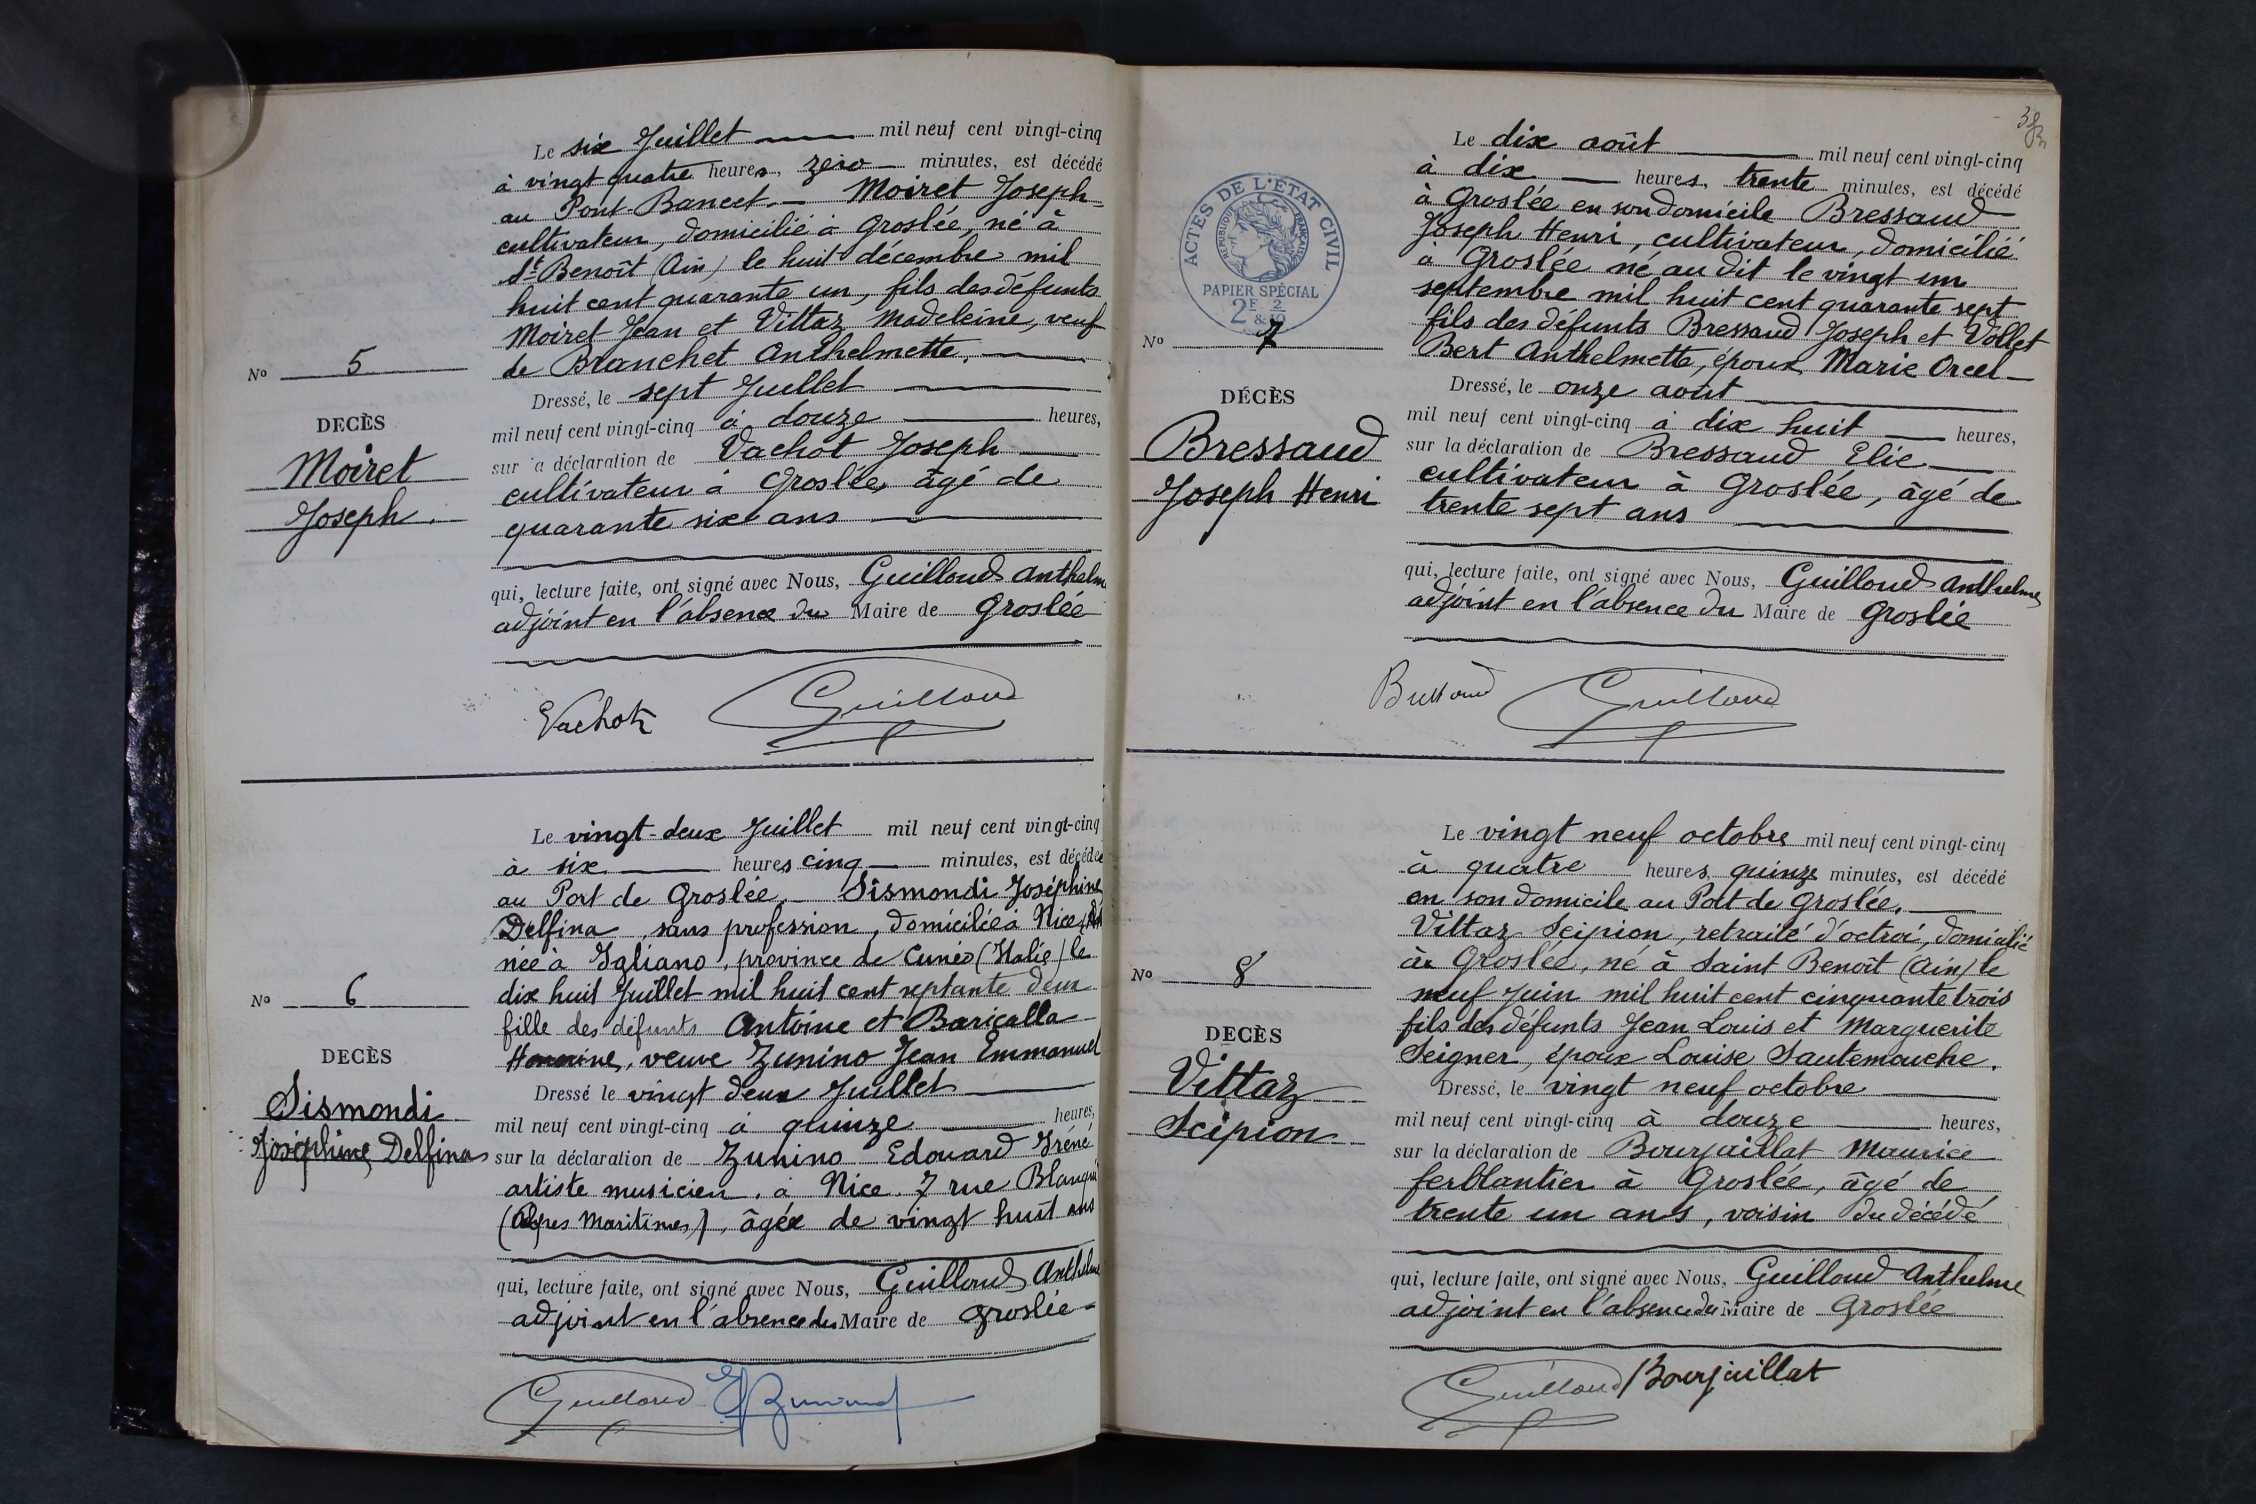 Le six Juillet mil neuf cent vingt-cinq
à vingt quatre heures, zéro minutes, est décédé
au Pont-Bancet. Moiret Joseph
cultivateur, domicilié à Groslée, né à
St Benoît (Ain) le huit décembre mil
huit cent quarante un, fils des défunts
Moiret Jean et Vittaz Madeleine, veuf
de Branchet Anthelmette,
Nº 5
Dressé, le sept Juillet
DECÈS
mil neuf cent vingt-cinq à douze heures,
Moiret
sur la déclaration de Vachot Joseph
Joseph.
cultivateur à Groslée, âgé de
quarante six ans
qui, lecture faite, ont signé avec Nous, Guilloud Anthelme
adjoint en l'absence du Maire de Groslée
Vachot Guilloud
Le vingt-deux Juillet mil neuf cent vingt-cinq
à six heures cinq minutes, est décédée
au Port de Groslée. Sismondi Joséphine
Delfina, sans profession, domiciliée à Nice
née à Igliano, province de Cunéo (Italie) le
Nº 6
dix huit Juillet mil huit cent septante deux
fille des défunts Antoine et Baricalla
DECÈS
veuve Zunino Jean Emmanuel
Sismondi
Joséphine Delfina
Dressé le vingt deux Juillet
mil neuf cent vingt-cinq à quinze heures,
sur la déclaration de Zunino Edouard Iréné
artiste musicien, à Nice. 7 rue Blanqui
(Alpes Maritimes), âgée de vingt huit ans
qui, lecture faite, ont signé avec Nous, Guilloud Anthelme
adjoint en l'absence du Maire de Groslée
Guilloud
38
ACTES DE L'ETAT CIVIL
REPUBLIQUE FRANÇAISE
PAPIER SPÉCIAL
2F & 2/10
Le dix août mil neuf cent vingt-cinq
à dix heures, trente minutes, est décédé
à Groslée en son domicile Bressaud
Joseph Henri, cultivateur, domicilié
à Groslée né au dit le vingt un
septembre mil huit cent quarante sept
fils des défunts Bressaud Joseph et Vollet
Bert Anthelmette, époux Marie Orcel
Nº 7
DÉCÈS
Bressaud
Joseph Henri
Dressé, le onze août
mil neuf cent vingt-cinq à dix huit heures,
sur la déclaration de Bressaud Elie
cultivateur à Groslée, âgé de
trente sept ans
qui, lecture faite, ont signé avec Nous, Guilloud Anthelme
adjoint en l'absence du Maire de Groslée
Bressaud Guilloud
Le vingt neuf octobre mil neuf cent vingt-cinq
à quatre heures, quinze minutes, est décédé
en son domicile au Port de Groslée.
Vittaz Scipion, retraité d'octroi, domicilié
à Groslée, né à Saint Benoît (Ain) le
neuf Juin mil huit cent cinquante trois
fils des défunts Jean Louis et Marguerite
Seigner, époux Louise Sautemouche.
Nº 8
DECÈS
Vittaz
Scipion
Dressé, le vingt neuf octobre
mil neuf cent vingt-cinq à douze heures,
sur la déclaration de Bourjaillat Maurice
ferblantier à Groslée, âgé de
trente un ans, voisin du décédé
qui, lecture faite, ont signé avec Nous, Guilloud Anthelme
adjoint en l'absence du Maire de Groslée
Guilloud Bourjaillat